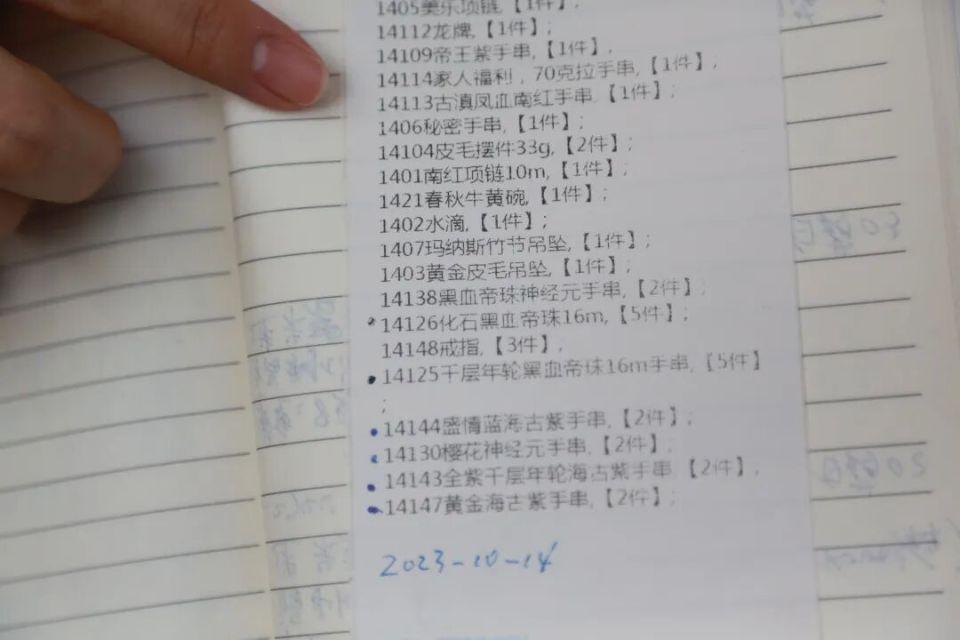 1405美乐项链,【1件】;
14112龙牌,【1件】;
14109帝王紫手串,【1件】,
14114家人福利，70克拉手串,【1件】;
14113古滇凤血南红手串,【1件】;
1406秘密手串,【1件】;
14104皮毛摆件33g,【2件】;
1401南红项链10m,【1件】;
1421春秋牛黄碗,【1件】;
1402水滴,【1件】;
1407玛纳斯竹节吊坠,【1件】;
1403黄金皮毛吊坠,【1件】;
14138黑血帝珠神经元手串,【2件】;
14126化石黑血帝珠16m,【5件】;
14148戒指,【3件】;
14125千层年轮黑血帝珠16m手串,【5件】
;
14144盛情蓝海古紫手串,【2件】;
14130樱花神经元手串,【2件】;
14143全紫千层年轮海古紫手串,【2件】;
14147黄金海古紫手串,【2件】;
2023-10-14